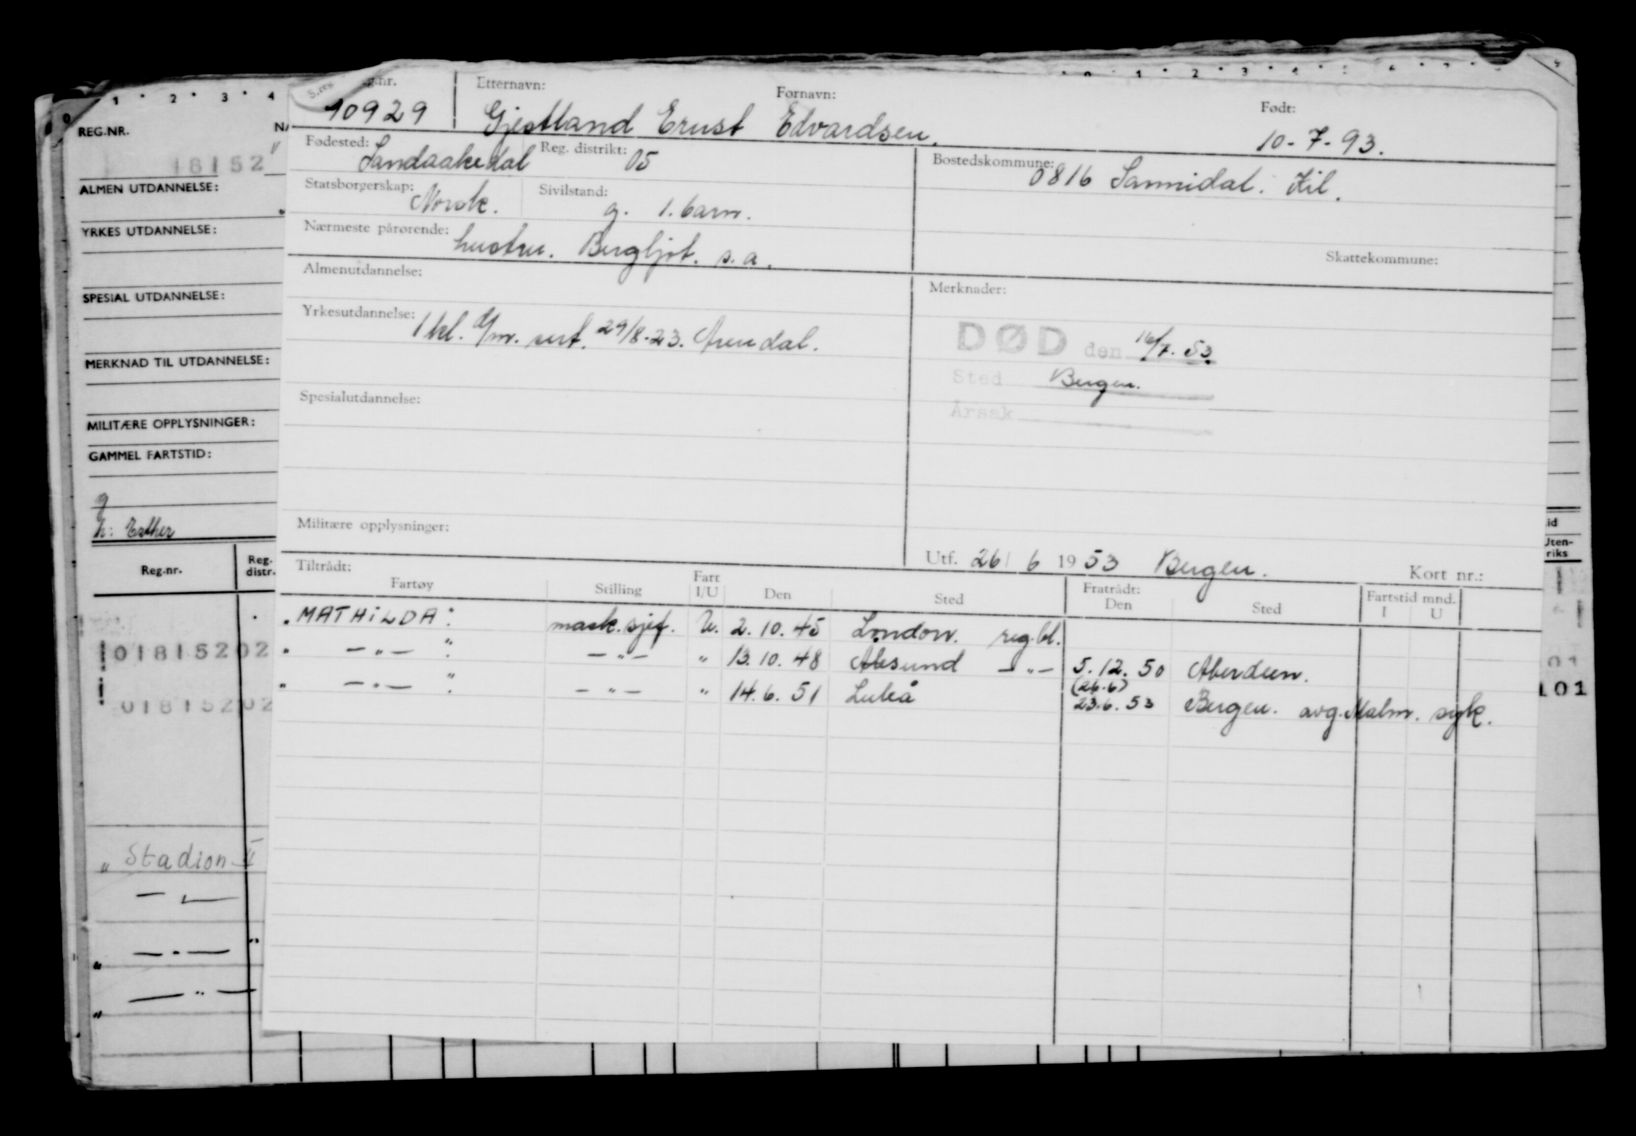 REG.NR.
18152
ALMEN UTDANNELSE:
YRKES UTDANNELSE:
SPESIAL UTDANNELSE:
MERKNAD TIL UTDANNELSE:
MILITÆRE OPPLYSNINGER:
GAMMEL FARTSTID:
g
h: Esther
Reg.nr. Reg. distr.
01815202
01815202
" Stadion II
10929 Etternavn: Fornavn: Født:
Gjestland Ernst Edvardsen. 10-7-93.
Fødested: Sandaakedal Reg. distrikt: 05 Bostedskommune: 0816 Sannidal. Kil.
Statsborgerskap: Norsk. Sivilstand: g. 1. barn.
Nærmeste pårørende: hustru. Bergljot. s.a. Skattekommune:
Almenutdannelse: Merknader:
Yrkesutdannelse: 1 kl. d/m. sert. 29/8-23. Arendal.
DØD den 16/7. 53
Sted Bergen.
Årsak
Spesialutdannelse:
Militære opplysninger:
Utf. 26/ 6 1953 Bergen. Kort nr.:
Tiltrådt: Fratrådt: Fartstid mnd.
Fartøy Stilling Fart I/U Den Sted Den Sted I U
MATHILDA: mask.sjef. U. 2.10.45 London. reg.bl.
" —"— " —"— " 13.10.48 Ålesund —"— 5.12.50 Aberdeen.
" —"— " —"— " 14.6.51 Luleå (26.6) 23.6.53 Bergen. avg. Malm. syk.
Uten-
riks
01
101